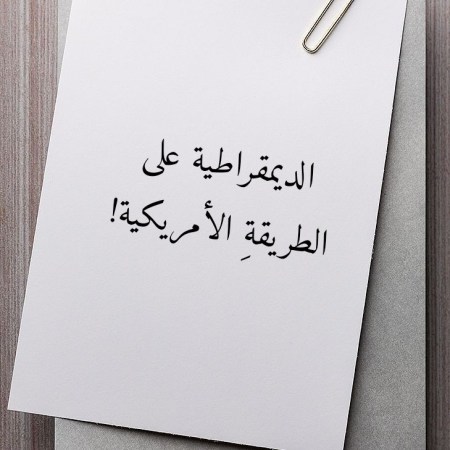 الديمقراطية على
الطريقةِ الأمريكية!